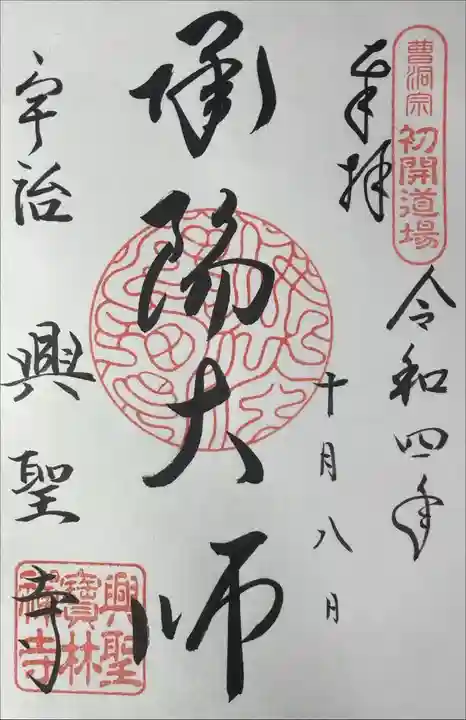 曹洞宗
初開道場
奉拝
令和四年
十月八日
承陽大師
宇治 興聖寺
興聖
寶林
禅寺